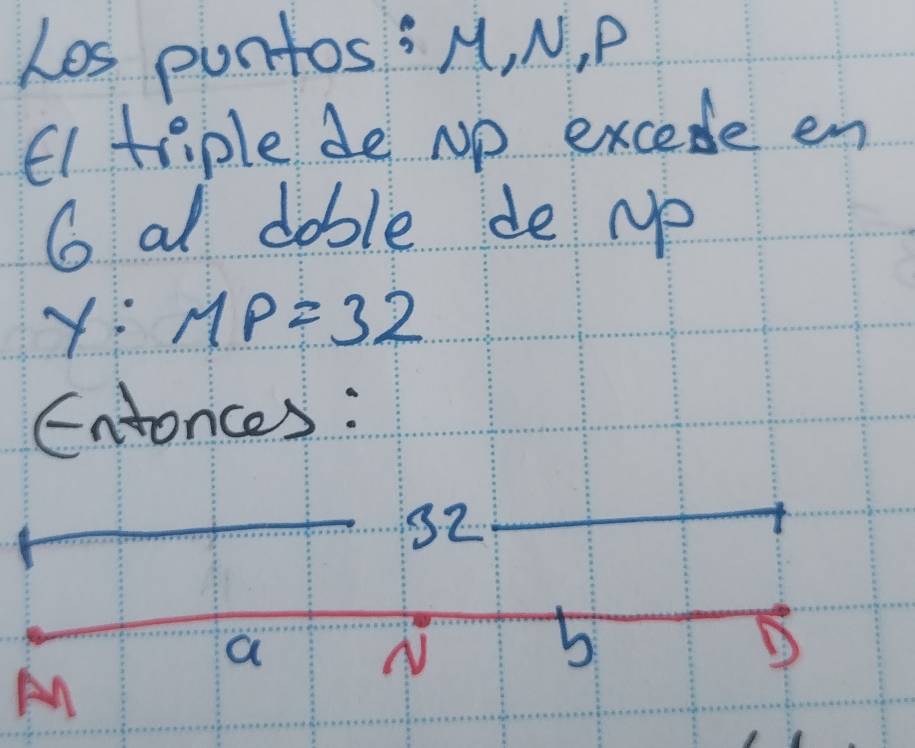 Los puntos: M, N, P
El triple de NP excede en
6 al doble de NP
Y: MP = 32
Entonces:
32
a N b P
M